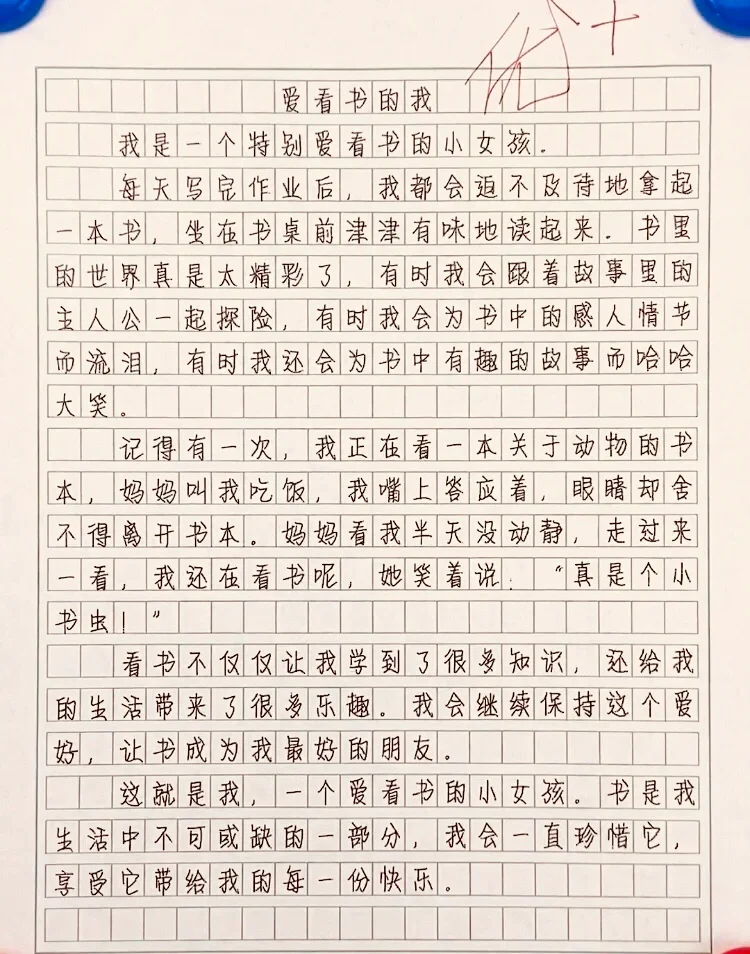 优+
爱看书的我
我是一个特别爱看书的小女孩.
每天写完作业后，我都会迫不及待地拿起
一本书，坐在书桌前津津有味地读起来.书里
的世界真是太精彩了，有时我会跟着故事里的
主人公一起探险，有时我会为书中的感人情节
而流泪，有时我还会为书中有趣的故事而哈哈
大笑。
记得有一次，我正在看一本关于动物的书
本，妈妈叫我吃饭，我嘴上答应着，眼睛却舍
不得离开书本。妈妈看我半天没动静，走过来
一看，我还在看书呢，她笑着说：“真是个小
书虫！”
看书不仅仅让我学到了很多知识，还给我
的生活带来了很多乐趣。我会继续保持这个爱
好，让书成为我最好的朋友。
这就是我，一个爱看书的小女孩。书是我
生活中不可或缺的一部分，我会一直珍惜它，
享受它带给我的每一份快乐。